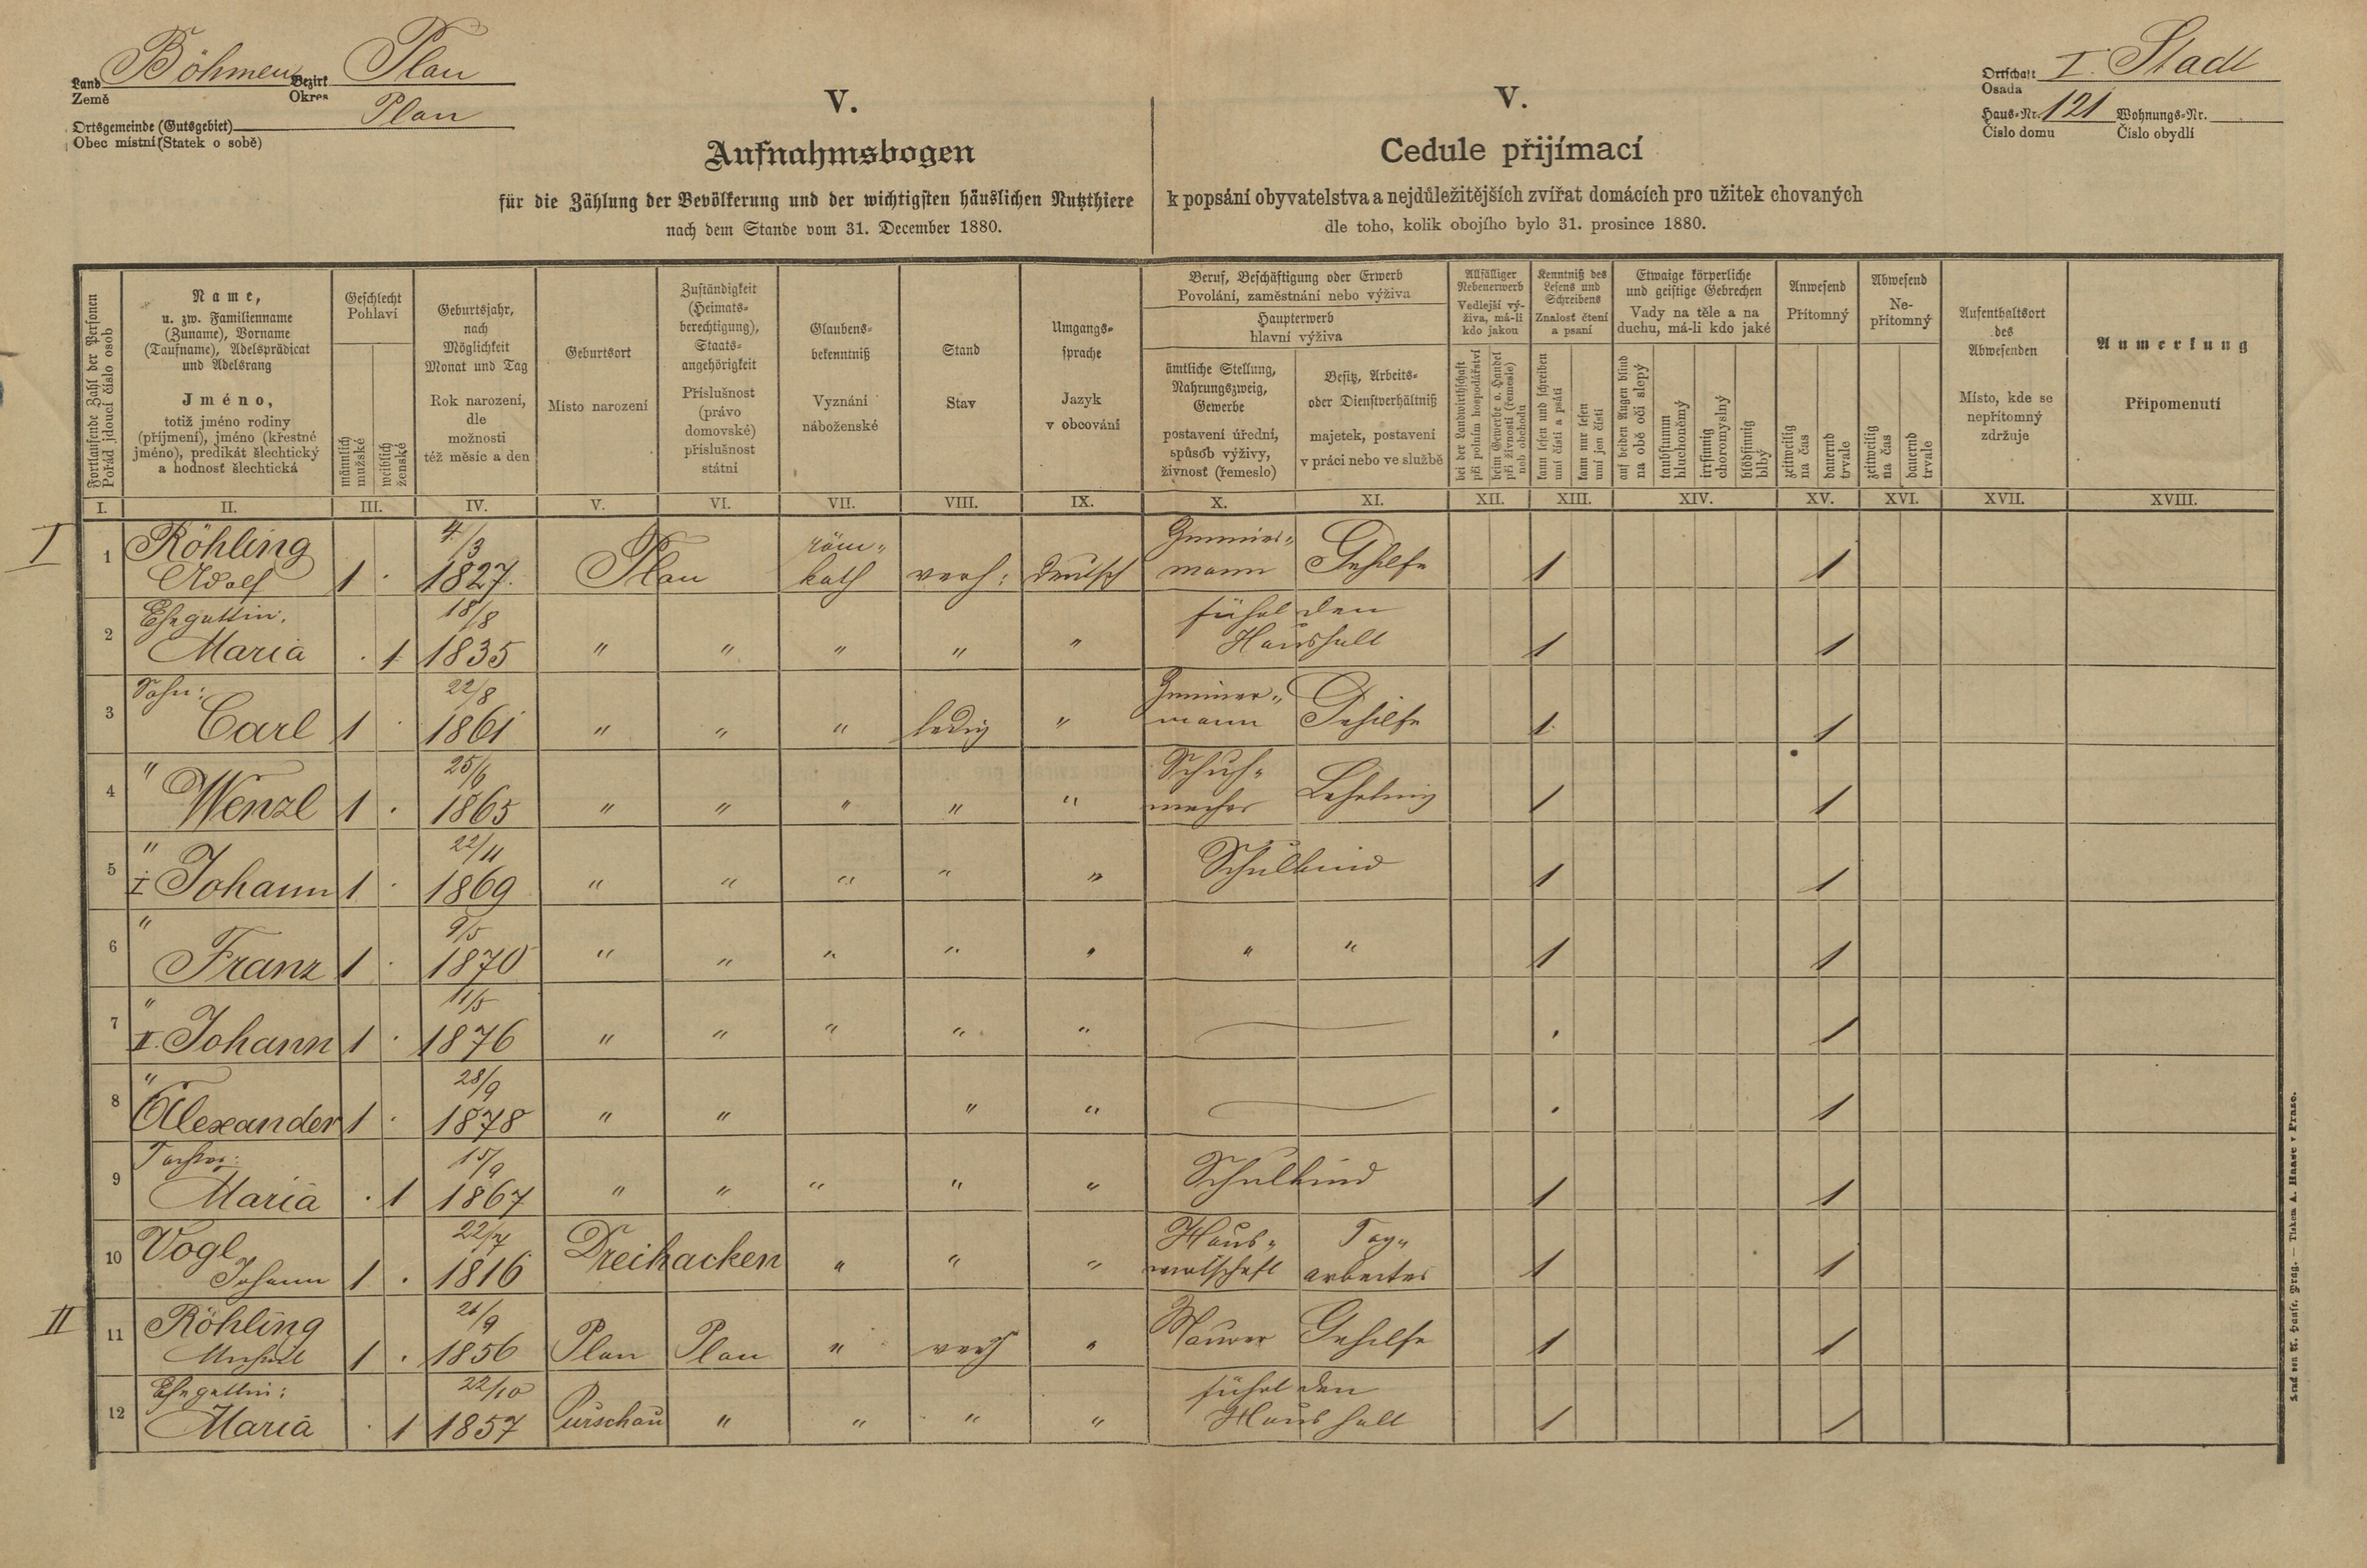 Land Böhmen Bezirk Plan
Země Okres
Ortsgemeinde (Gutsgebiet) Plan
Obec místní (Statek o sobě)
V.
Aufnahmsbogen
für die Zählung der Bevölkerung und der wichtigsten häuslichen Nutzthiere
nach dem Stande vom 31. December 1880.
V.
Cedule přijímací
k popsání obyvatelstva a nejdůležitějších zvířat domácích pro užitek chovaných
dle toho, kolik obojího bylo 31. prosince 1880.
Ortschaft I. Stadt
Osada
Haus-Nr. 121 Wohnungs-Nr.
Číslo domu Číslo obydlí
Fortlaufende Zahl der Personen
Pořád jdoucí číslo osob
Name,
u. zw. Familienname
(Zuname), Vorname
(Taufname), Adelsprädicat
und Adelsrang
Jméno,
totiž jméno rodiny
(příjmení), jméno (křestné
jméno), predikát šlechtický
a hodnosť šlechtická
Geschlecht
Pohlaví
männlich
mužské
weiblich
ženské
Geburtsjahr,
nach
Möglichkeit
Monat und Tag
Rok narození,
dle
možnosti
též měsíc a den
Geburtsort
Místo narození
Zuständigkeit
(Heimats-
berechtigung),
Staats-
angehörigkeit
Příslušnost
(právo
domovské)
příslušnost
státní
Glaubens-
bekenntniß
Vyznání
náboženské
Stand
Stav
Umgangs-
sprache
Jazyk
v obcování
Beruf, Beschäftigung oder Erwerb
Povolání, zaměstnání nebo výživa
Haupterwerb
hlavní výživa
ämtliche Stellung,
Nahrungszweig,
Gewerbe
postavení úřední,
spůsob výživy,
živnost (řemeslo)
Besitz, Arbeits-
oder Dienstverhältniß
majetek, postavení
v práci nebo ve službě
Allfälliger
Nebenerwerb
Vedlejší vý-
živa, má-li
kdo jakou
bei der Landwirthschaft
při polním hospodářství
beim Gewerbe o. Handel
při živnosti (řemesle)
neb obchodu
Kenntniß des
Lesens und
Schreibens
Znalosť čtení
a psaní
kann lesen und schreiben
umí čísti a psáti
kann nur lesen
umí jen čísti
Etwaige körperliche
und geistige Gebrechen
Vady na těle a na
duchu, má-li kdo jaké
auf beiden Augen blind
na obě oči slepý
taubstumm
hluchoněmý
irrsinnig
choromyslný
blödsinnig
blbý
Anwesend
Přítomný
zeitweilig
na čas
dauernd
trvale
Abwesend
Ne-
přítomný
zeitweilig
na čas
dauernd
trvale
Aufenthaltsort
des
Abwesenden
Místo, kde se
nepřítomný
zdržuje
Anmerkung
Připomenutí
I. II. III. IV. V. VI. VII. VIII. IX. X. XI. XII. XIII. XIV. XV. XVI. XVII. XVIII.
I 1 Röhling 4/3 röm= Zimmer=
Adolf 1 . 1827. Plan kath verh: deutsch mann Gehilfe 1 1
2 Ehegattin: 18/8 führt den
Maria . 1 1835 " " " " " Haushalt 1 1
3 Sohn: 22/8 Zimmer=
Carl 1 . 1861 " " " ledig " mann Gehilfe 1 1
4 " 25/6 Schuh=
Wenzl 1 . 1865 " " " " " macher Lehrling 1 1
5 " 22/11
I Johann 1 . 1869 " " " " " Schulkind 1 1
6 " 9/5
Franz 1 . 1870 " " " " " " " 1 1
7 " 11/5
II. Johann 1 . 1876 " " " " " . 1
8 " 28/9
Alexander 1 . 1878 " " " " . 1
9 Tochter: 15/9
Maria . 1 1867 " " " " " Schulkind 1 1
10 Vogl 22/7 Haus= Tag=
Johann 1 . 1816 Dreihacken " " " wirtschaft arbeiter 1 1
II 11 Röhling 21/9
1 . 1856 Plan Plan " verh " Maurer Gehilfe 1 1
12 Ehegattin: 22/10 führt den
Maria . 1 1857 Purschau " " " " Haushalt 1 1
Druck von A. Haase, Prag. — Tiskem A. Haase v Praze.